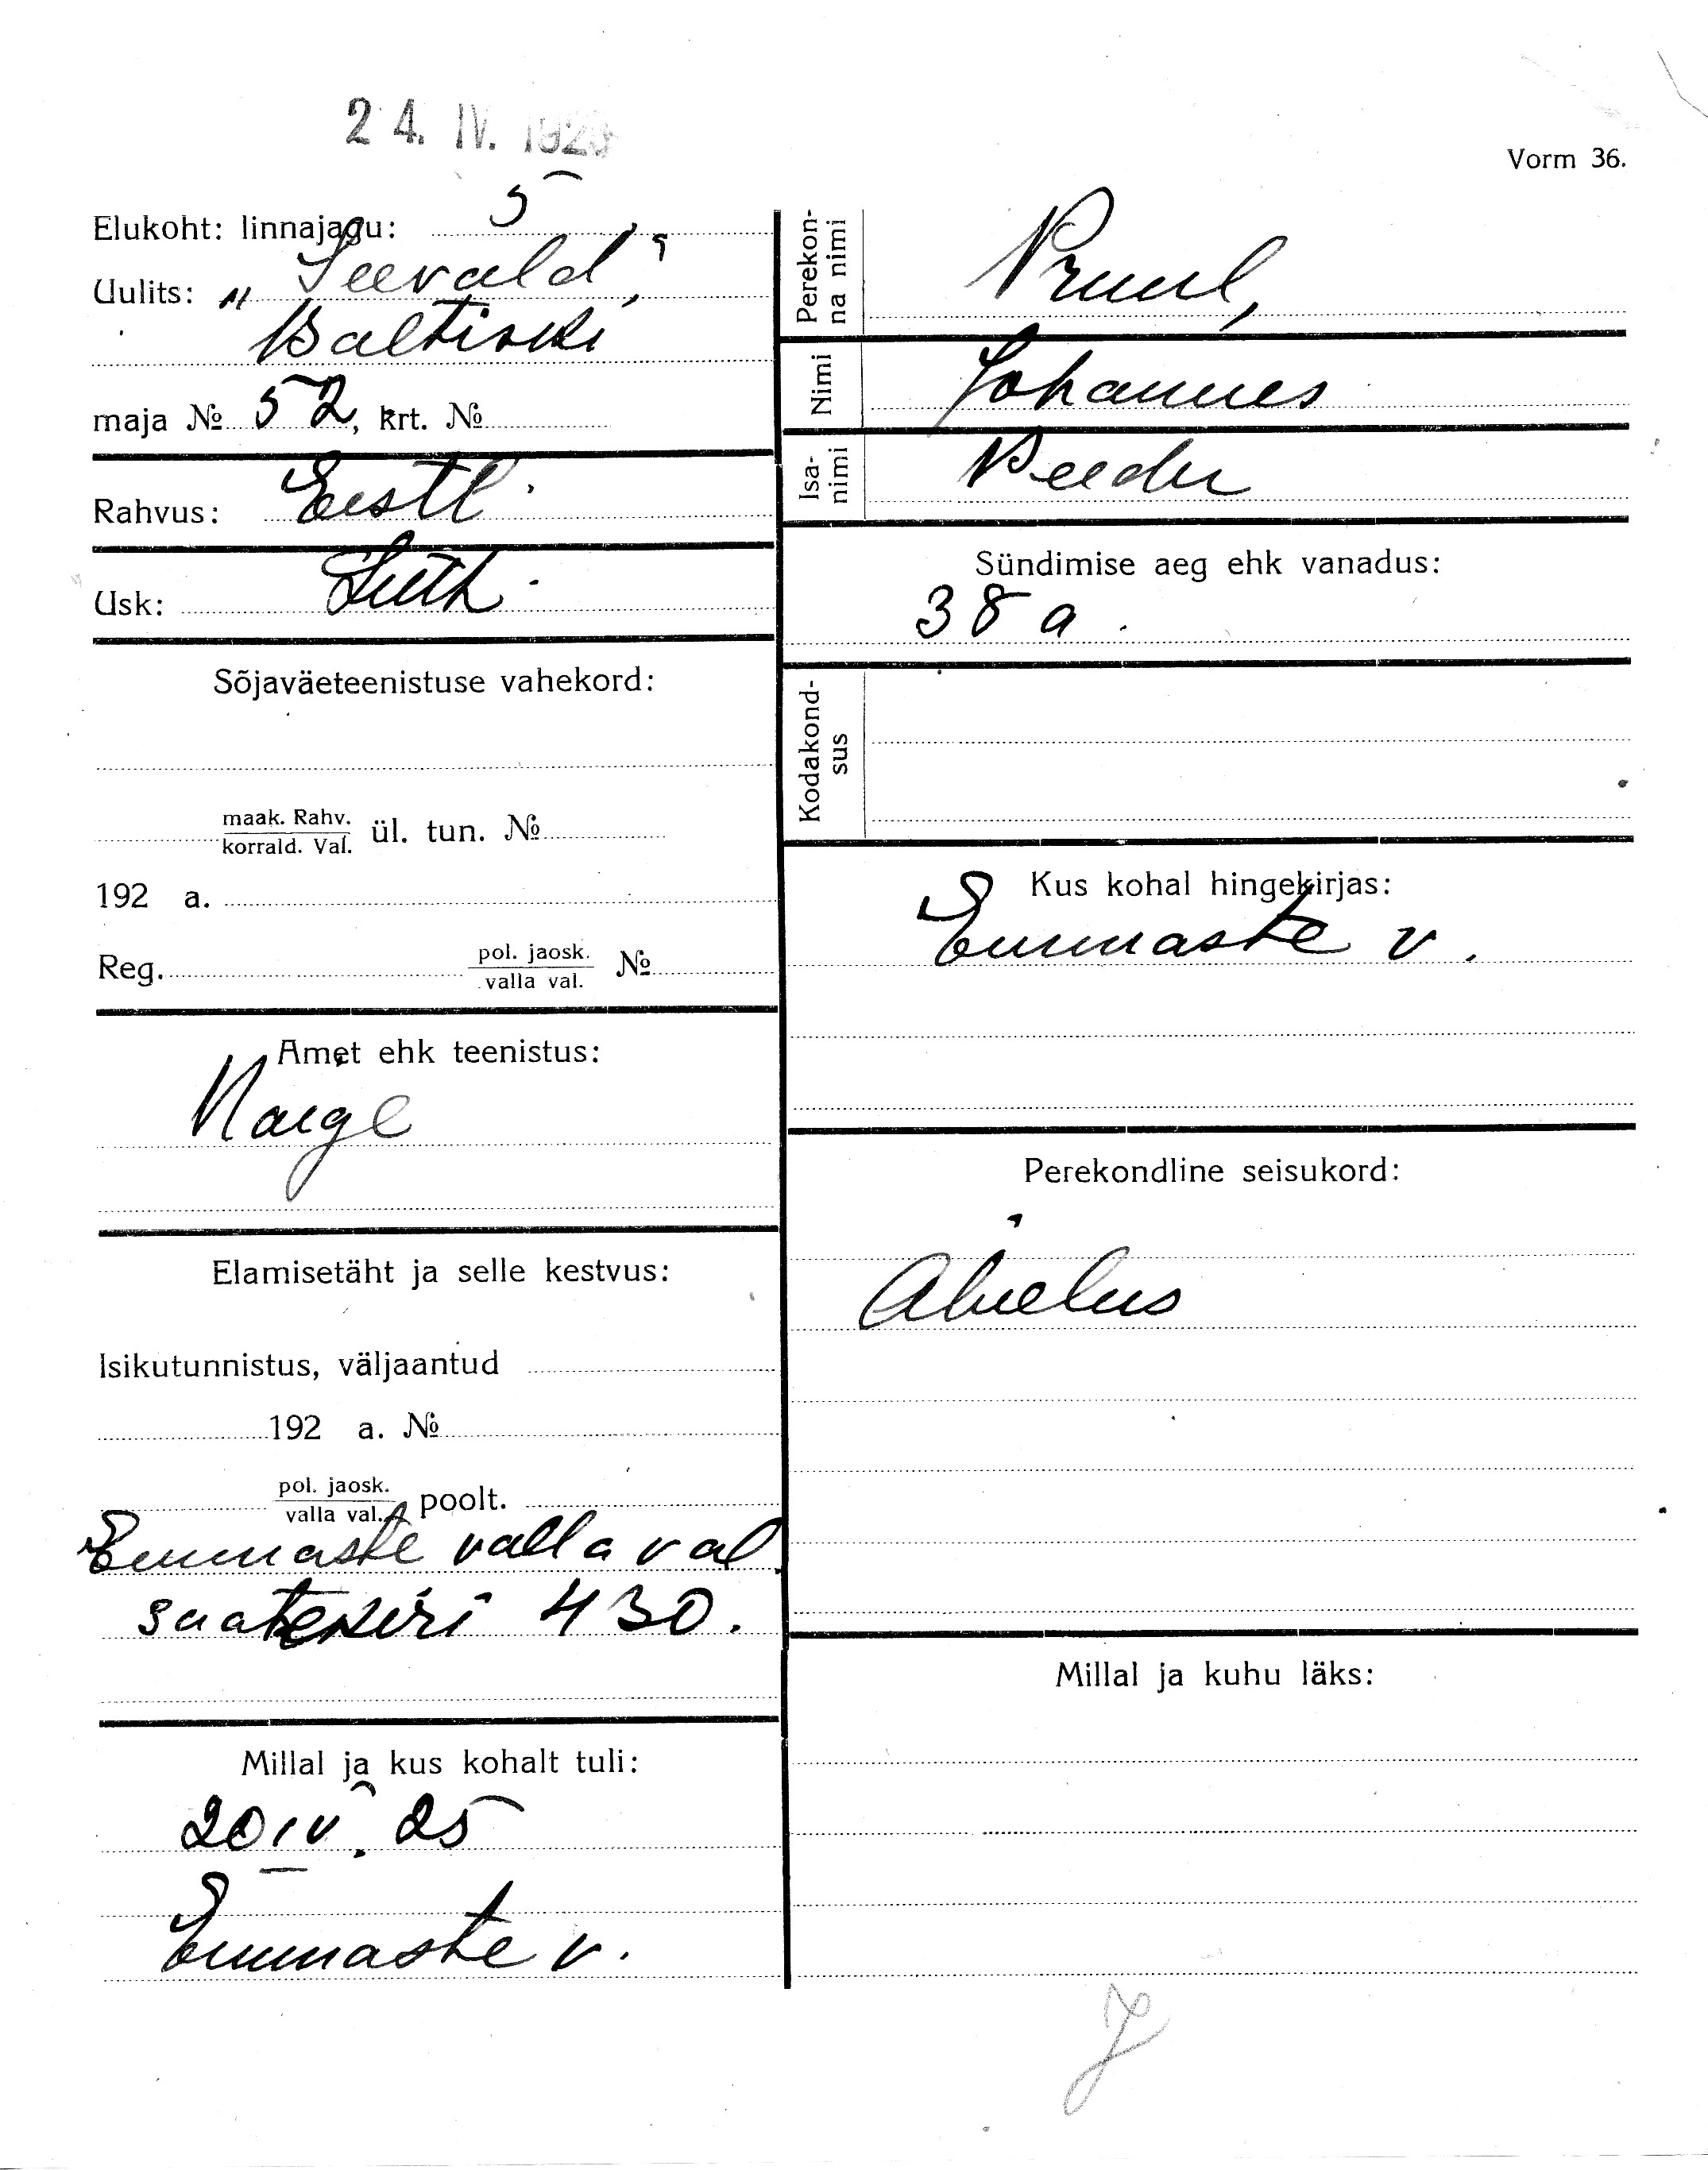 24. IV. 1925
Vorm 36.
Elukoht: linnajagu: 5
Uulits: „Seevald“,
Baltiski
maja № 52, krt. №
Rahvus: Eesti
Usk: Luth.
Sõjaväeteenistuse vahekord:
maak. Rahv.
korrald. Val. ül. tun. №
192 a.
Reg. pol. jaosk.
valla val. №
Amet ehk teenistus:
Haige
Elamisetäht ja selle kestvus:
Isikutunnistus, väljaantud
192 a. №
pol. jaosk.
valla val. poolt.
Emmaste valla val.
saatekiri 430.
Millal ja kus kohalt tuli:
20 IV. 25
Emmaste v.
Perekon-
na nimi Pruul,
Nimi Johannes
Isa-
nimi Peeter
Sündimise aeg ehk vanadus:
38 a.
Kodakond-
sus
Kus kohal hingekirjas:
Emmaste v.
Perekondline seisukord:
Abielus
Millal ja kuhu läks: